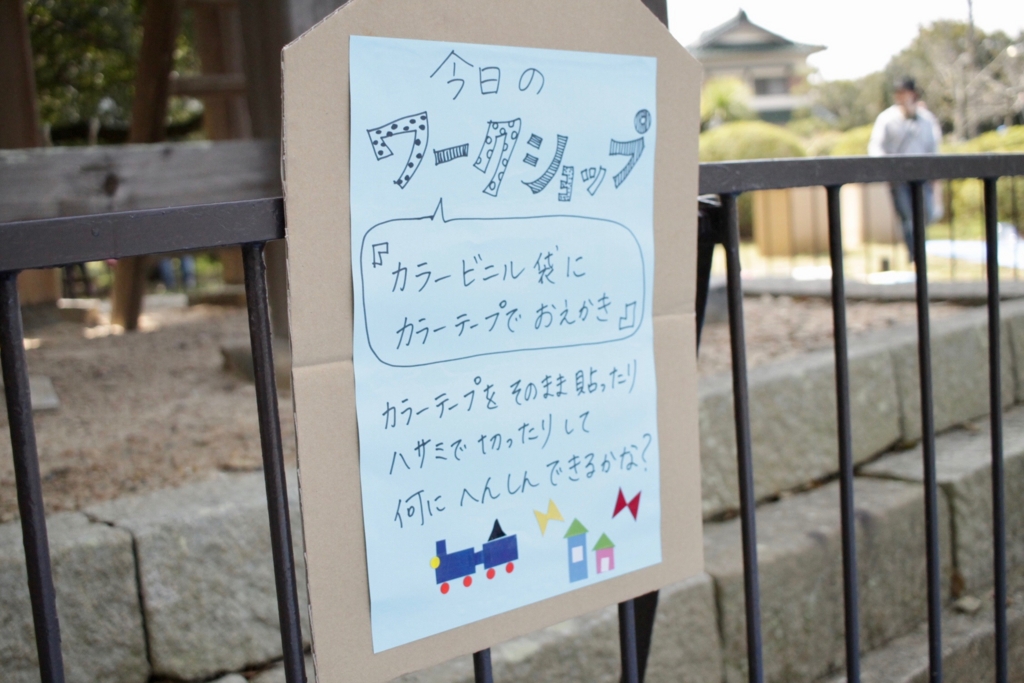 今日の
ワークショップ
『カラービニル袋に
カラーテープでおえかき』
カラーテープをそのまま貼ったり
ハサミで切ったりして
何にへんしんできるかな？